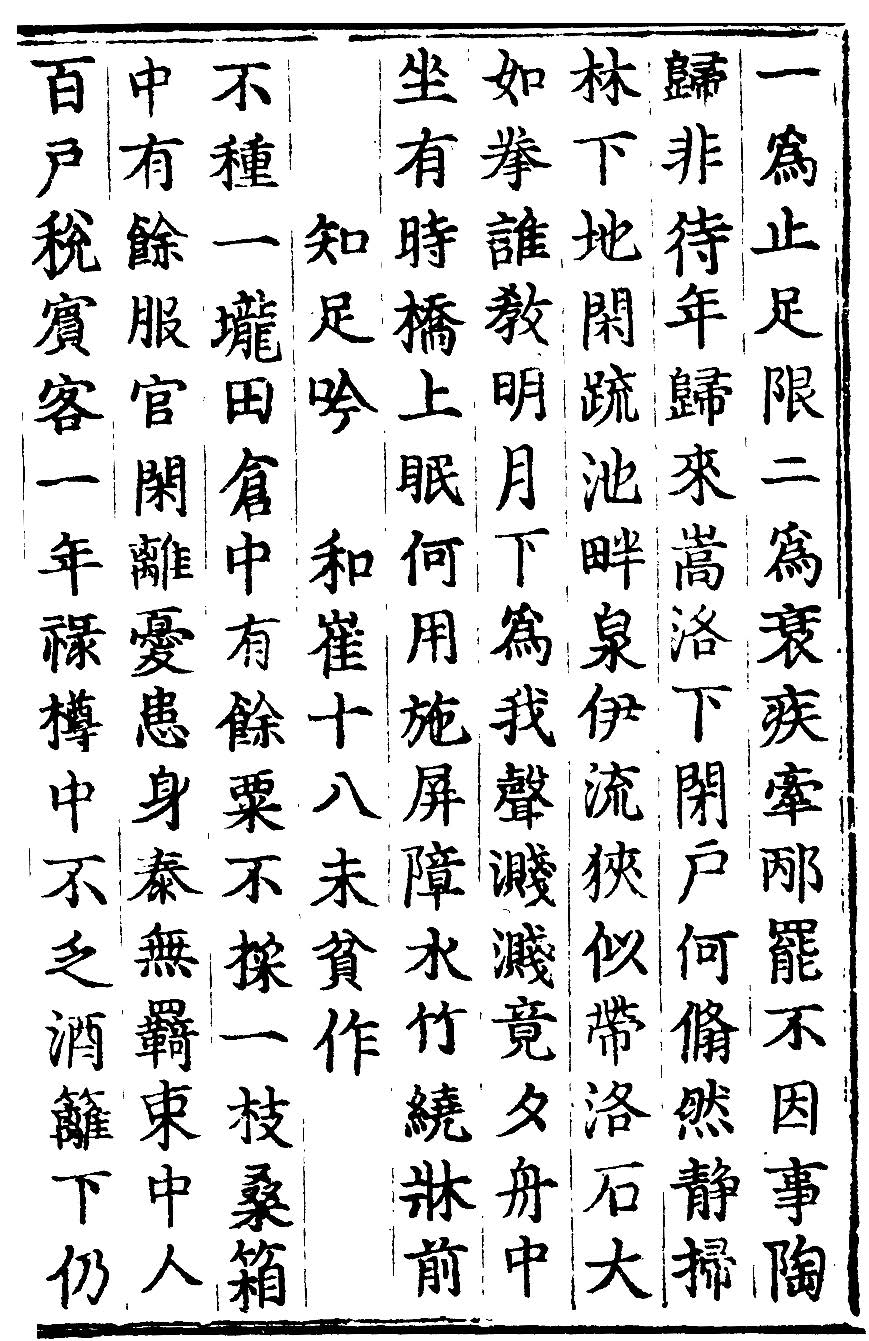 一為止足限二為衰疾牽邴罷不因事陶
歸非待年歸來嵩洛下閉戶何翛然静掃
林下地閑疏池畔泉伊流狹似帶洛石大
如拳誰教明月下為我聲濺濺竟夕舟中
坐有時橋上眠何用施屏障水竹繞牀前
知足吟　和崔十八未貧作
不種一壠田倉中有餘粟不採一枝桑箱
中有餘服官閑離憂患身泰無羈束中人
百戶稅賔客一年祿樽中不乏酒籬下仍